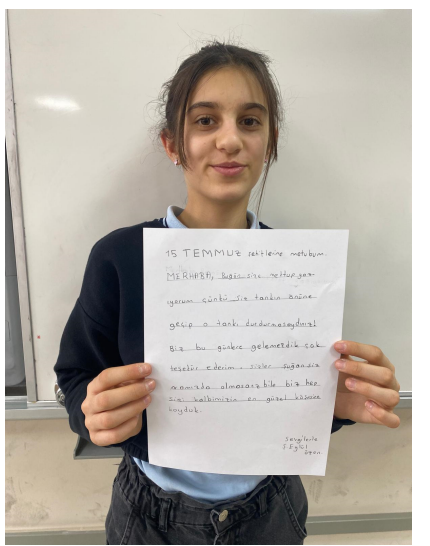 15 TEMMUZ şehitlerine metubum.
MERHABA, Bugün size mektup yaz-
ıyorum çünkü siz tankın önüne
geçip o tankı durdurmasaydınız!
Biz bu günlere gelemezdik çok
teşekür ederim sizler şuan siz
aramızda olmasazbile biz hep
sizi kalbimizin en güzel köşesine
koyduk.
Sevgilerle
Eylül